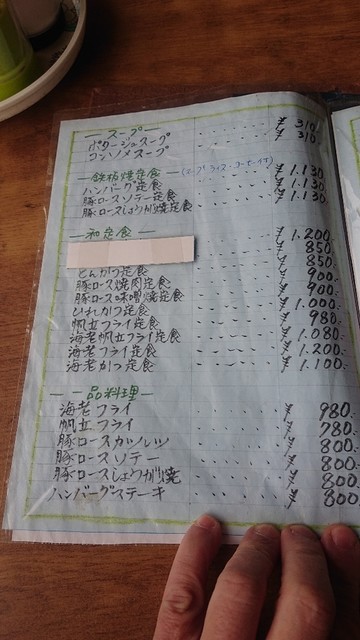 ースープー
ポタージュスープ ¥310.
コンソメスープ ¥310.
ー鉄板焼定食ー
ハンバーグ定食 ¥1.130
豚ロースソテー定食 ¥1.130
豚ロースしょうが焼定食 ¥1.130
ー和定食ー
¥1.200.
¥850.
¥850.
とんかつ定食 ¥900.
豚ロース焼肉定食 ¥900.
豚ロース味噌焼定食 ¥1.000.
ひれかつ定食 ¥980.
帆立フライ定食 ¥1.080.
海老帆立フライ定食 ¥1.200.
海老フライ定食 ¥1.100.
海老かつ定食
ー一品料理ー
海老フライ ¥980.
帆立フライ ¥780.
豚ロースカツレツ ¥800.
豚ロースソテー ¥800.
豚ロースしょうが焼 ¥800.
ハンバーグステーキ ¥800.